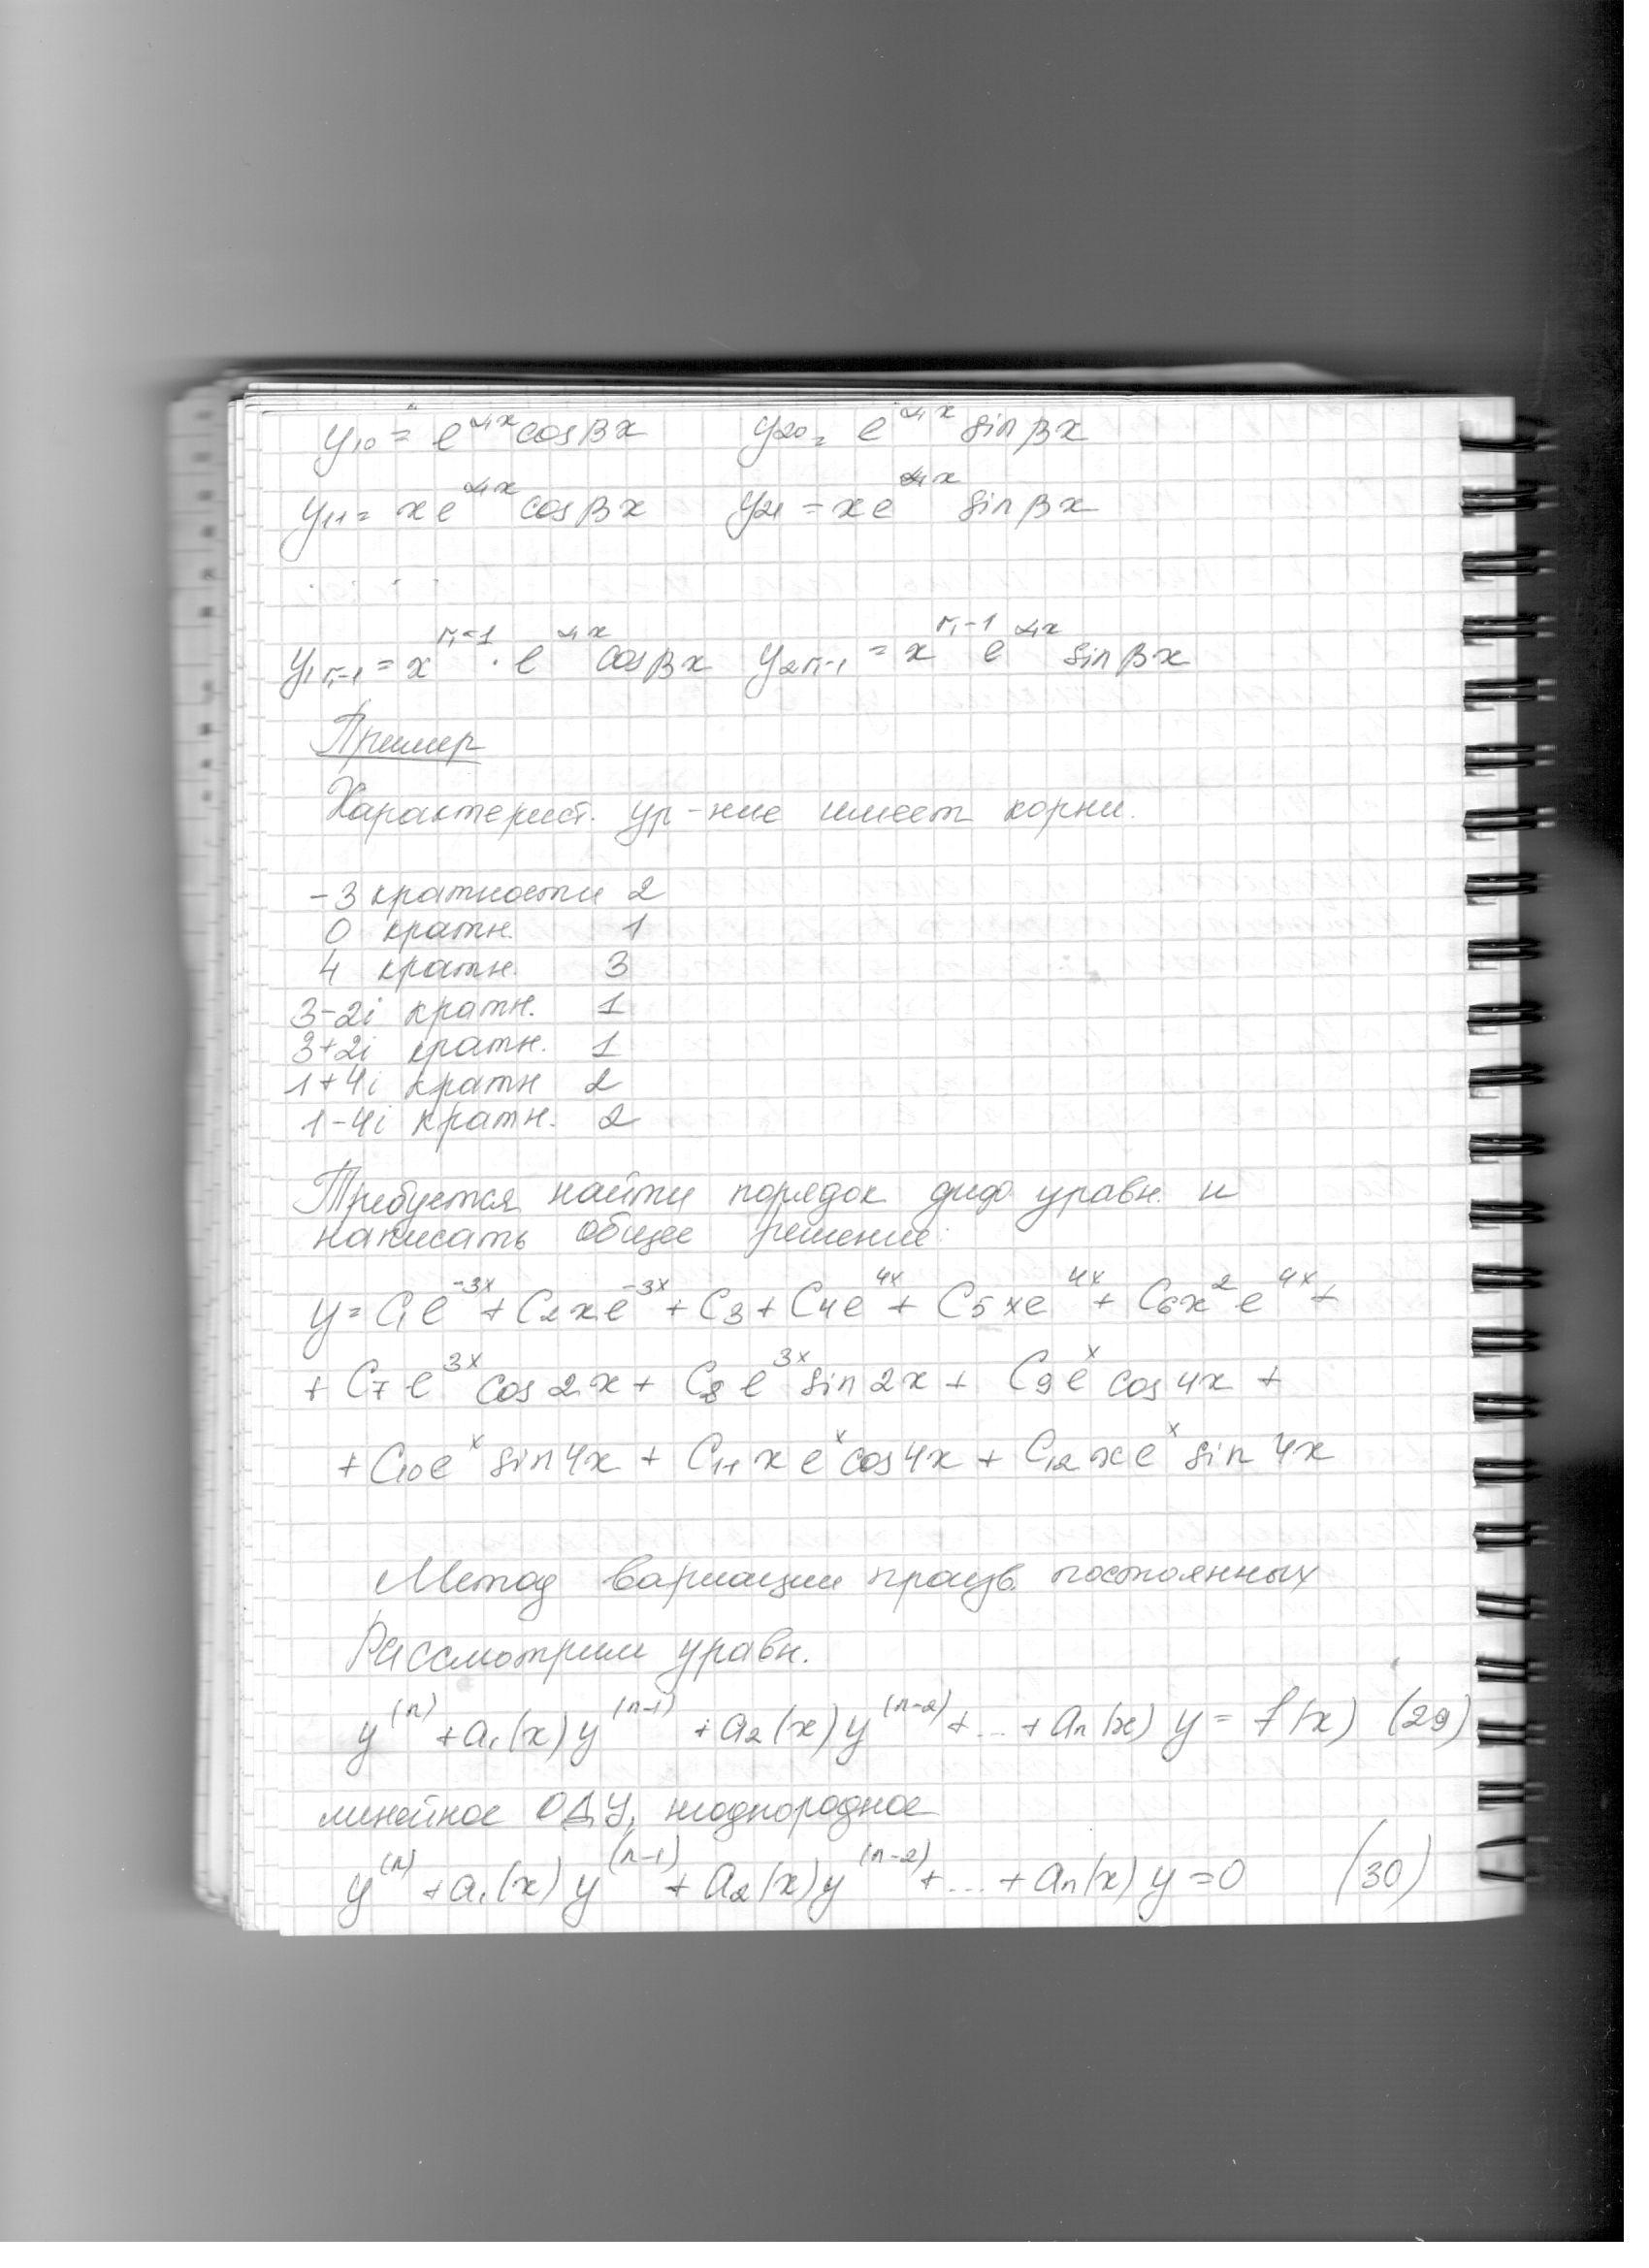 y₁₀ = e^{α₁x} cosβx   y₂₀ = e^{α₁x} sinβx
y₁₁ = xe^{α₁x} cosβx   y₂₁ = xe^{α₁x} sinβx
. . . .
y_{1r₁-1} = x^{r₁-1} · e^{α₁x} cosβx   y_{2r₁-1} = x^{r₁-1} e^{α₁x} sinβx
Пример
Характерист. ур-ние имеет корни.
-3 кратности 2
0 кратн. 1
4 кратн. 3
3-2i кратн. 1
3+2i кратн. 1
1+4i кратн 2
1-4i кратн. 2
Требуется найти порядок диф уравн. и
написать общее решение:
y = C₁e^{-3x} + C₂xe^{-3x} + C₃ + C₄e^{4x} + C₅xe^{4x} + C₆x²e^{4x} +
+ C₇e^{3x} cos2x + C₈e^{3x} sin2x + C₉e^x cos4x +
+ C₁₀e^x sin4x + C₁₁xe^x cos4x + C₁₂xe^x sin4x
Метод вариации произв. постоянных
Рассмотрим уравн.
y^{(n)} + a₁(x)y^{(n-1)} + a₂(x)y^{(n-2)} + ... + aₙ(x)y = f(x) (29)
линейное ОДУ, неоднородное
y^{(n)} + a₁(x)y^{(n-1)} + a₂(x)y^{(n-2)} + ... + aₙ(x)y = 0 (30)